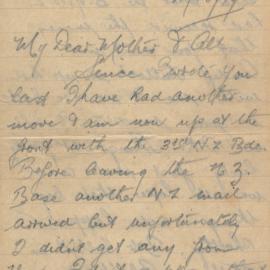 My Dear Mother & Alf
Since I wrote you
last I have had another
move I am now up at the
front with the 3rd N Z Bde.
Before leaving the N.Z.
Base another N Z mail
arrived but unfortunately
I didn't get any from